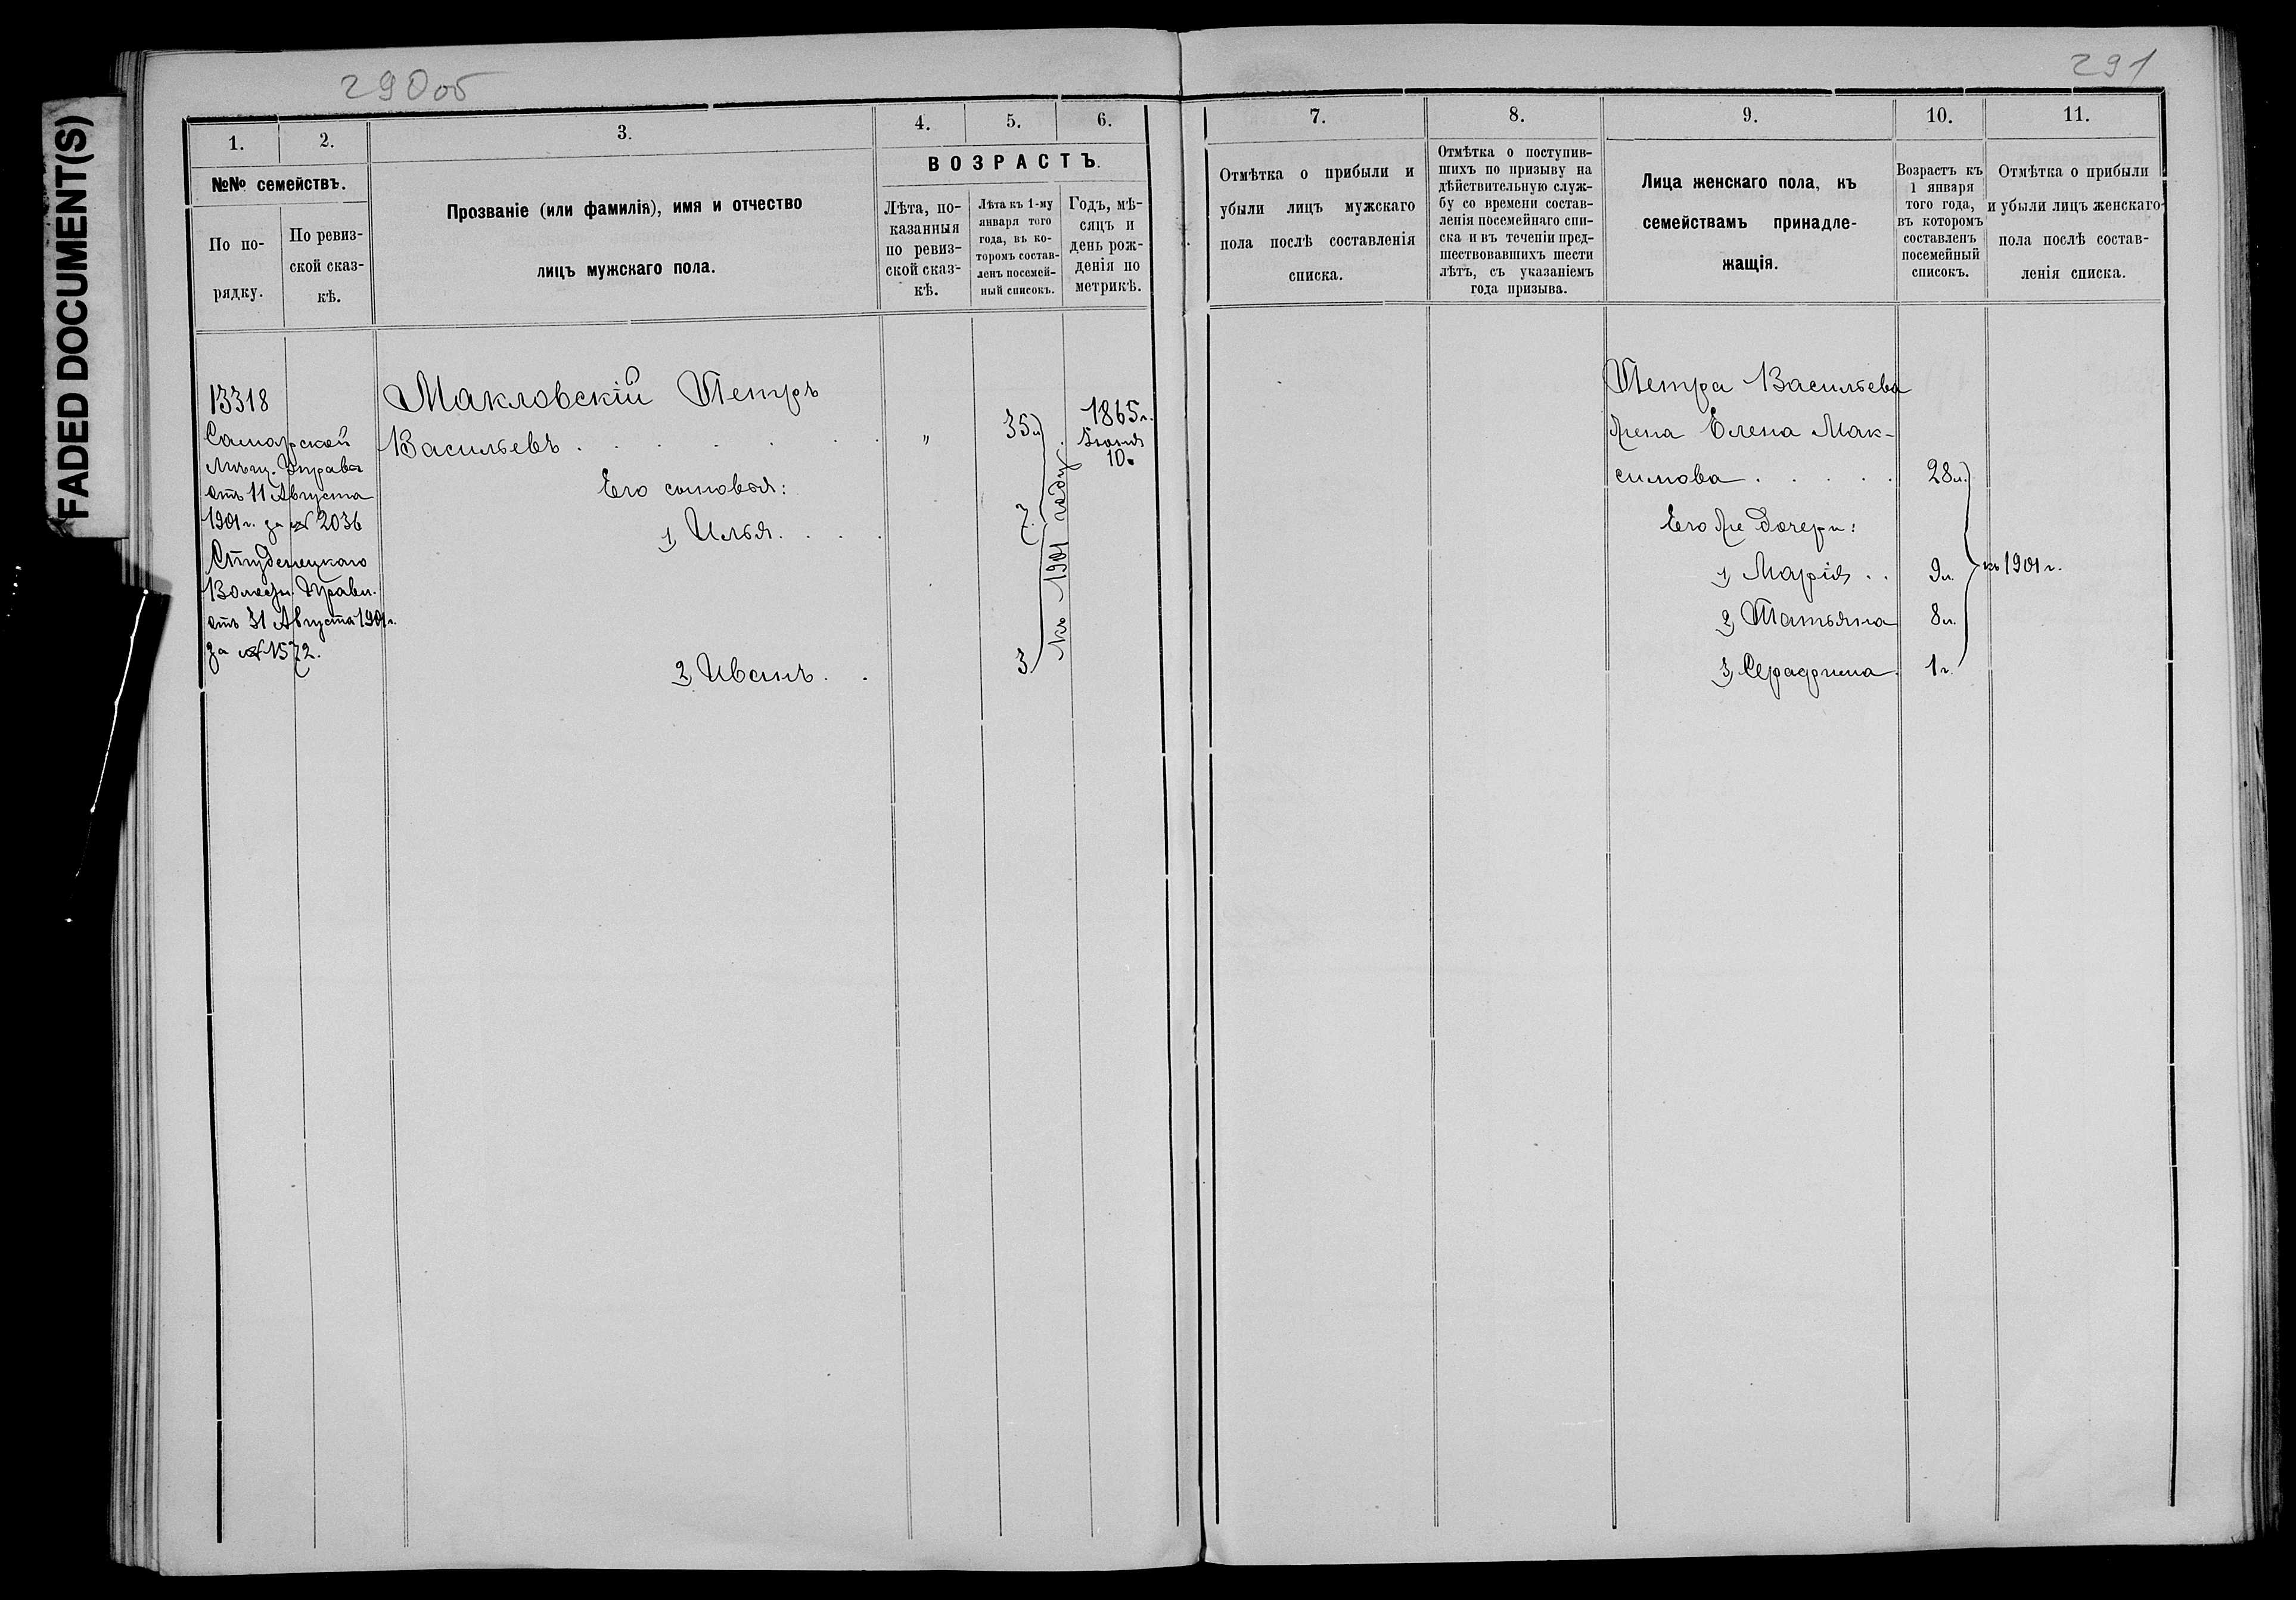 FADED DOCUMENT(S)
290об
1.
2.
3.
4.
5.
6.
№№ семействъ.
По по-
рядку.
По ревиз-
ской сказ-
кѣ.
Прозваніе (или фамилія), имя и отчество
лицъ мужскаго пола.
ВОЗРАСТЪ.
Лѣта, по-
казанныя
по ревиз-
ской сказ-
кѣ.
Лѣта къ 1-му
января того
года, въ ко-
торомъ состав-
ленъ посемей-
ный списокъ.
Годъ, мѣ-
сяцъ и
день рож-
денія по
метрикѣ.
13318
Самарской
Мѣщ. Управы
отъ 11 Августа
1901 г. за № 2036
Студенецкаго
Волостн. Правл.
отъ 31 Августа 1901 г.
за № 1572.
Макловскій Петръ
Васильевъ . . . . . . „ 35 л.
1865 г.
Іюня
10.
Его сыновья:
1) Илья . . . . 7
2) Иванъ . . 3
Къ 1901 году
291
7.
8.
9.
10.
11.
Отмѣтка о прибыли и
убыли лицъ мужскаго
пола послѣ составленія
списка.
Отмѣтка о поступив-
шихъ по призыву на
дѣйствительную служ-
бу со времени состав-
ленія посемейнаго спи-
ска и въ теченіи пред-
шествовавшихъ шести
лѣтъ, съ указаніемъ
года призыва.
Лица женскаго пола, къ
семействамъ принадле-
жащія.
Возрастъ къ
1 января
того года,
въ которомъ
составленъ
посемейный
списокъ.
Отмѣтка о прибыли
и убыли лицъ женскаго
пола послѣ состав-
ленія списка.
Петра Васильева
жена Елена Мак-
симова . . . . . 28 л.
Его же дочери:
1) Марія . . 9 л.
къ 1901 г.
2) Татьяна 8 л.
3) Серафима . 1 г.